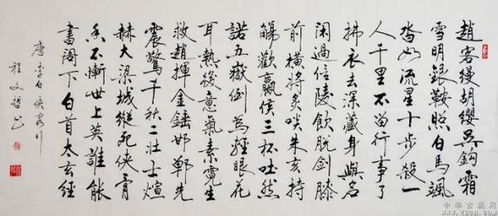 趙客縵胡纓吳鉤霜
雪明銀鞍照白馬颯
沓如流星十步殺一
人千里不留行事了
拂衣去深藏身與名
閑過信陵飲脫劍膝
前橫將炙啖朱亥持
觴勸嬴侯三杯吐然
諾五嶽倒為輕眼花
耳熱後意氣素霓生
救趙揮金錘邯鄲先
震驚千秋二壯士烜
赫大梁城縱死俠骨
香不慚世上英誰能
書閣下白首太玄經
唐李白俠客行
程文哲书
中华古玩网